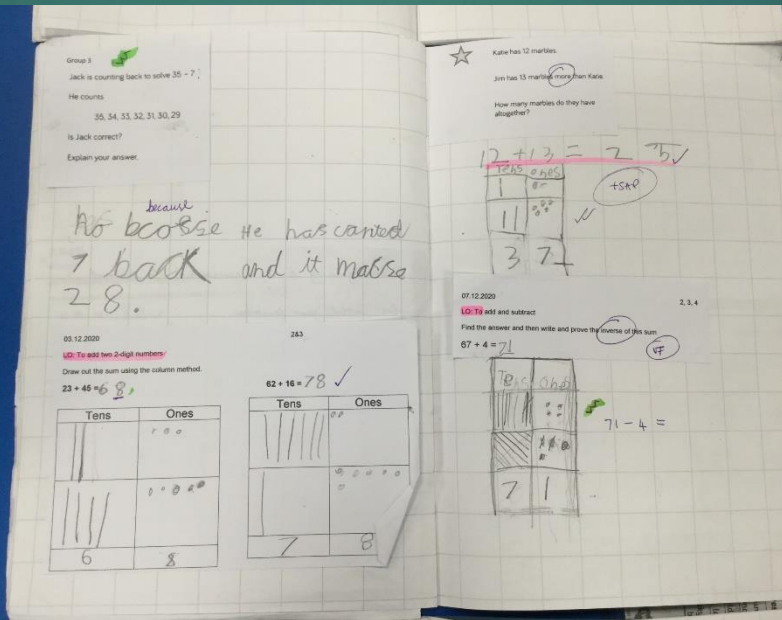 Group 3
Jack is counting back to solve 35 - 7.
He counts
35, 34, 33, 32, 31, 30, 29
Is Jack correct?
Explain your answer.
because
No bcosse He has canted
7 back and it macse
28.
03.12.2020
2&3
LO: To add two 2-digit numbers
Draw out the sum using the column method.
23 + 45 = 68
Tens Ones
6 8
62 + 16 = 78 ✓
Tens Ones
7 8
Katie has 12 marbles.
Jim has 13 marbles more than Katie
How many marbles do they have
altogether?
12 + 13 = 25 ✓
Tens ones
3 7
07.12.2020
2, 3, 4
LO: To add and subtract
Find the answer and then write and prove the inverse of this sum
67 + 4 = 71
VF
Tens Ones
7 1
71 - 4 =